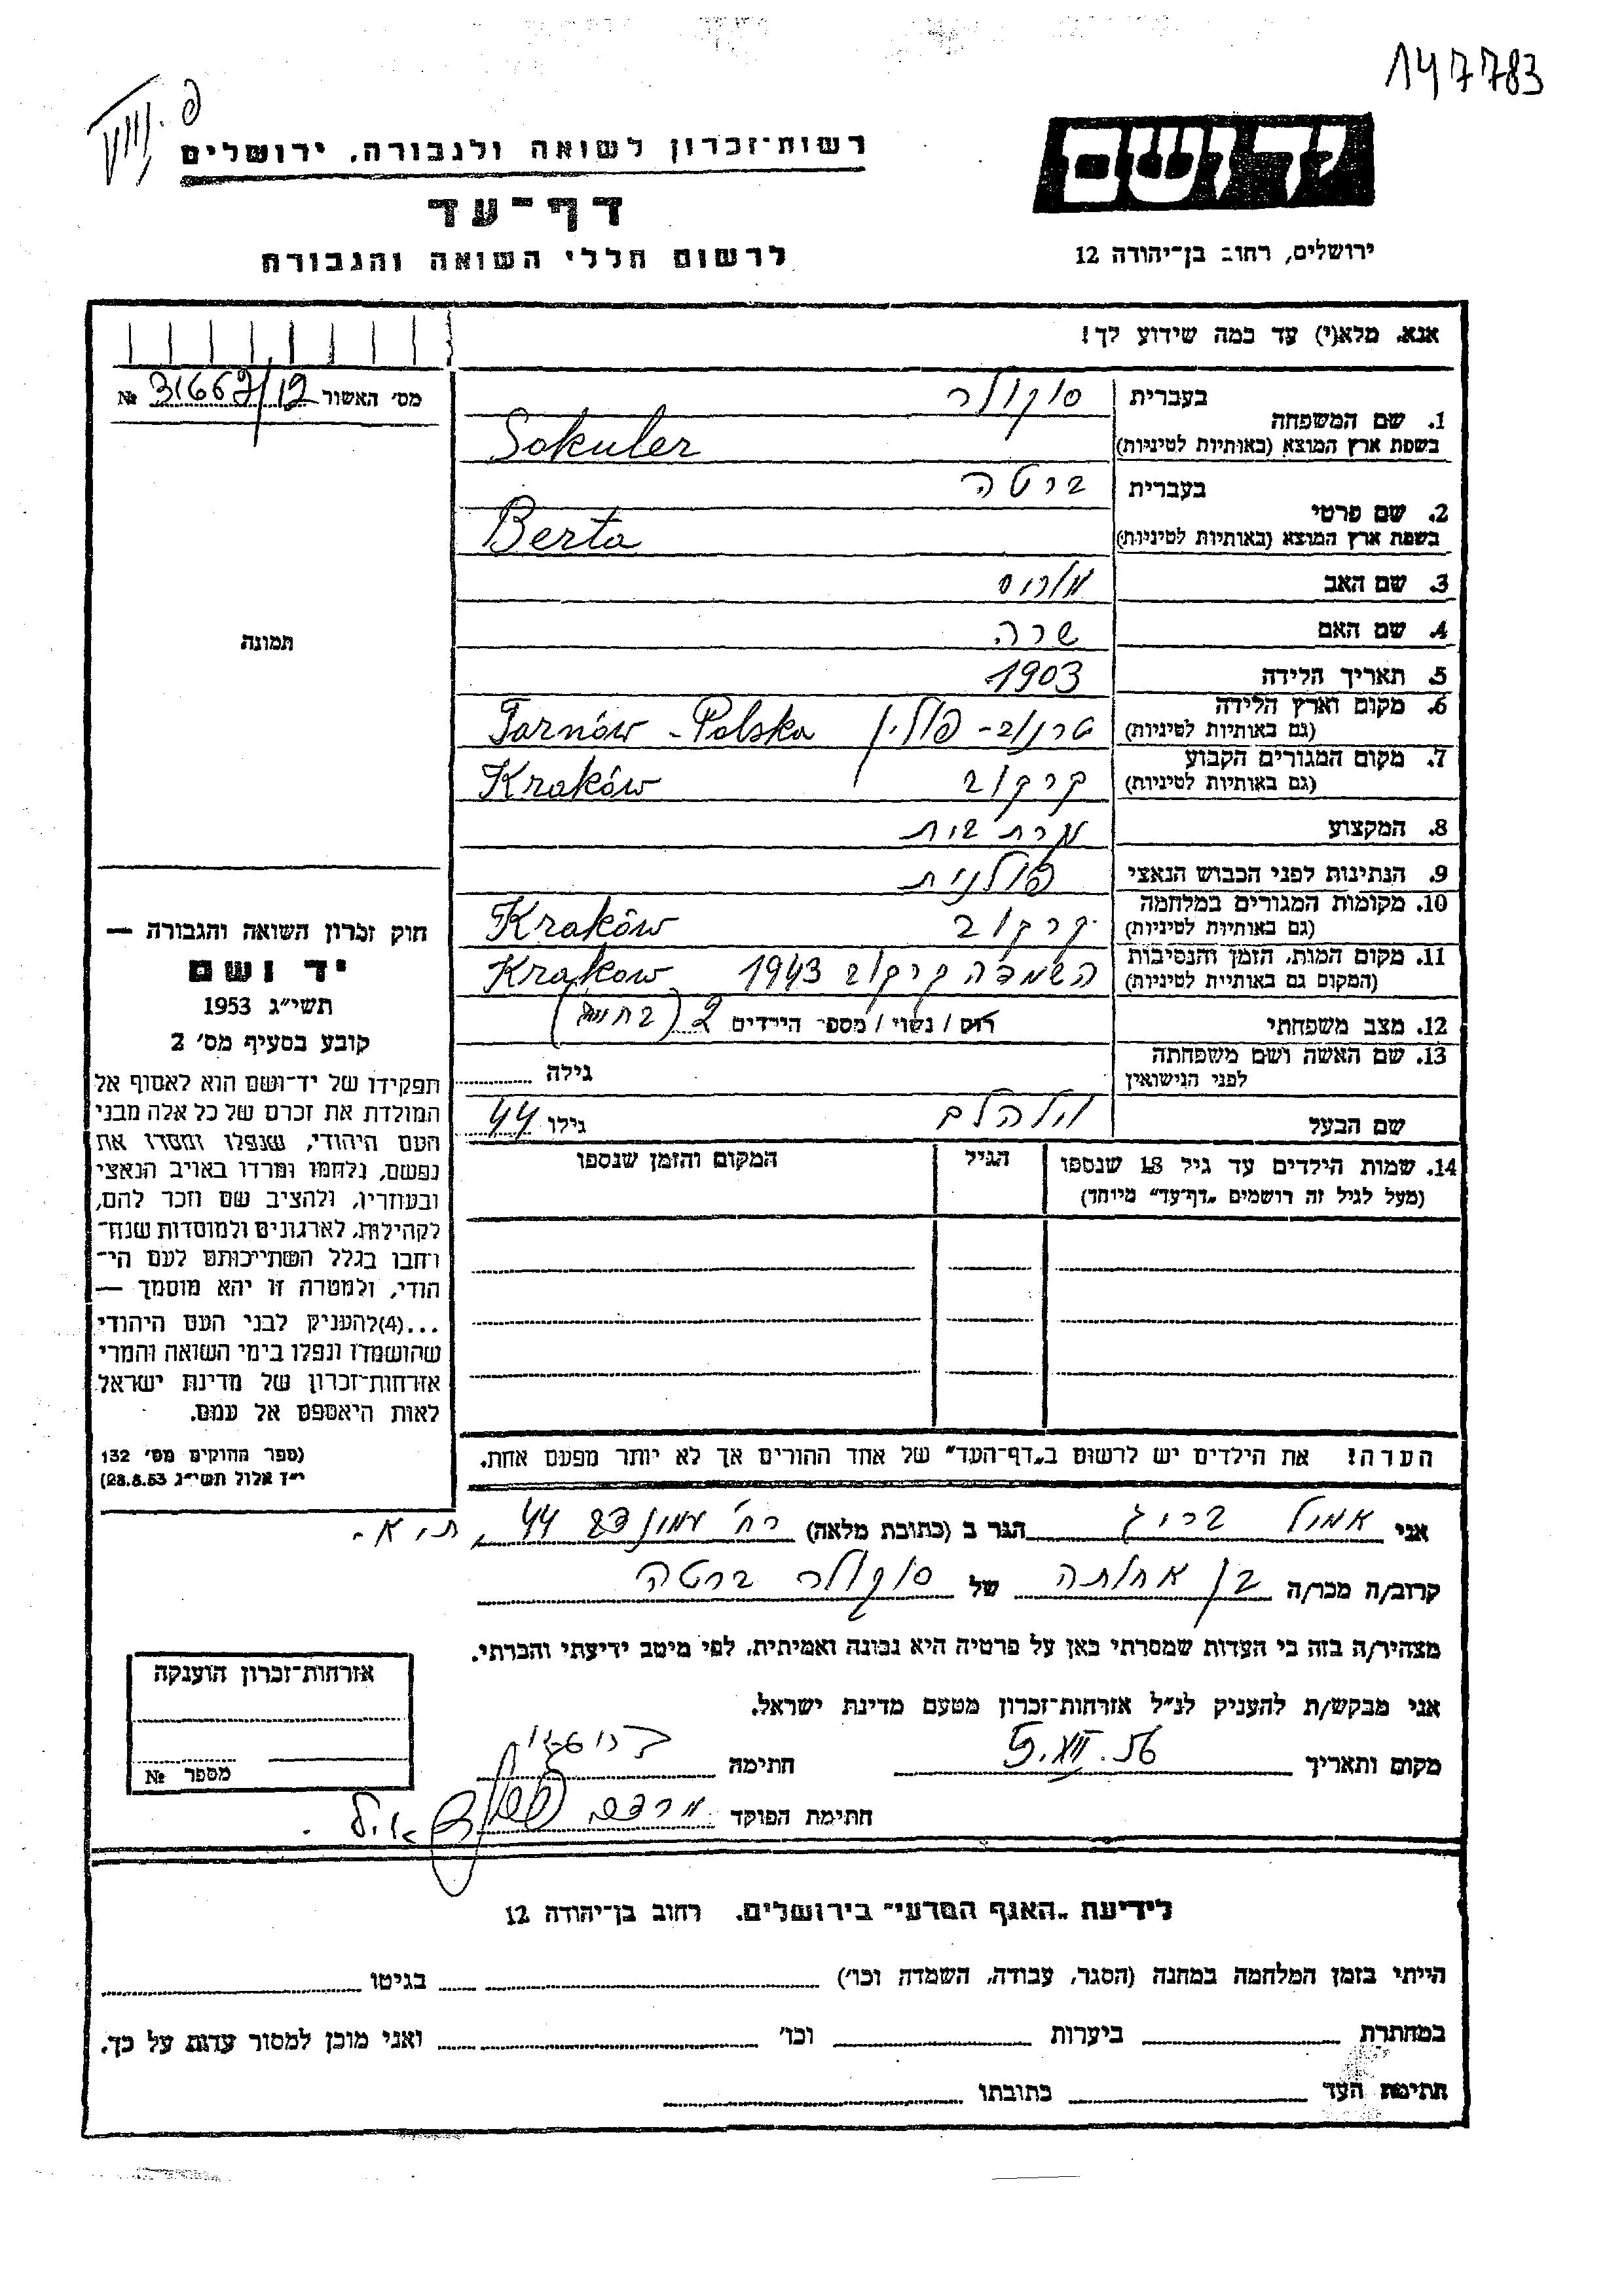 147783
רשות־זכרון לשואה ולגבורה. ירושלים
דף־עד
לרשום חללי השואה והגבורה
יד ושם
ירושלים, רחוב בן־יהודה 12
אנא. מלא(י) עד כמה שידוע לך!
מס׳ האשור 31667/12 №
1. שם המשפחה בעברית סוקולר
בשפת ארץ המוצא (באותיות לטיניות) Sokuler
2. שם פרטי בעברית ברטה
בשפת ארץ המוצא (באותיות לטיניות) Berta
3. שם האב
4. שם האם שרה
5. תאריך הלידה 1903
6. מקום וארץ הלידה (גם באותיות לטיניות) טרנוב - פולין Tarnów - Polska
7. מקום המגורים הקבוע (גם באותיות לטיניות) קרקוב Kraków
8. המקצוע עקרת בית
9. הנתינות לפני הכבוש הנאצי פולנית
10. מקומות המגורים במלחמה (גם באותיות לטיניות) קרקוב Kraków
11. מקום המות. הזמן והנסיבות (המקום גם באותיית לטיניות) השמדה קרקוב 1943 Krakow
12. מצב משפחתי רוק / נשוי / מספר הילדים 2 (בחיים)
13. שם האשה ושם משפחתה לפני הנישואין גילה
שם הבעל וילהלם גילו 44
14. שמות הילדים עד גיל 18 שנספו הגיל המקום והזמן שנספו
(מעל לגיל זה רושמים „דף־עד״ מיוחד)
הערה! את הילדים יש לרשום ב„דף־העד״ של אחד ההורים אך לא יותר מפעם אחת.
תמונה
חוק זכרון השואה והגבורה —
יד ושם
תשי״ג 1953
קובע בסעיף מס׳ 2
תפקידו של יד־ושם הוא לאסוף אל
המולדת את זכרם של כל אלה מבני
העם היהודי, שנפלו ומסרו את
נפשם, נלחמו ומרדו באויב הנאצי
ובעוזריו, ולהציב שם וזכר להם,
לקהילות, לארגונים ולמוסדות שנח־
רחבו בגלל השתייכותם לעם הי־
הודי, ולמטרה זו יהא מוסמך —
...(4)להעניק לבני העם היהודי
שהושמדו ונפלו בימי השואה והמרי
אזרחות־זכרון של מדינת ישראל
לאות היאספם אל עמם.
(ספר החוקים מס׳ 132
י״ד אלול תשי״ג 28.8.53)
אני אמיל ברוג הגר ב (כתובת מלאה) רח׳ 44 ת״א -
קרוב/ה מכר/ה בן אחותה של סוקולר ברטה
מצהיר/ה בזה כי העדות שמסרתי כאן על פרטיה היא נכונה ואמיתית. לפי מיטב ידיעתי והכרתי.
אני מבקש/ת להעניק לנ״ל אזרחות־זכרון מטעם מדינת ישראל.
מקום ותאריך חתימה
חתימת הפוקד
אזרחות־זכרון הוענקה
מספר №
לידיעת „האגף המדעי״ בירושלים. רחוב בן־יהודה 12
הייתי בזמן המלחמה במחנה (הסגר, עבודה, השמדה וכו׳) בגיטו
במחתרת ביערות וכו׳ ואני מוכן למסור עדות על כך.
חתימת העד כתובתו